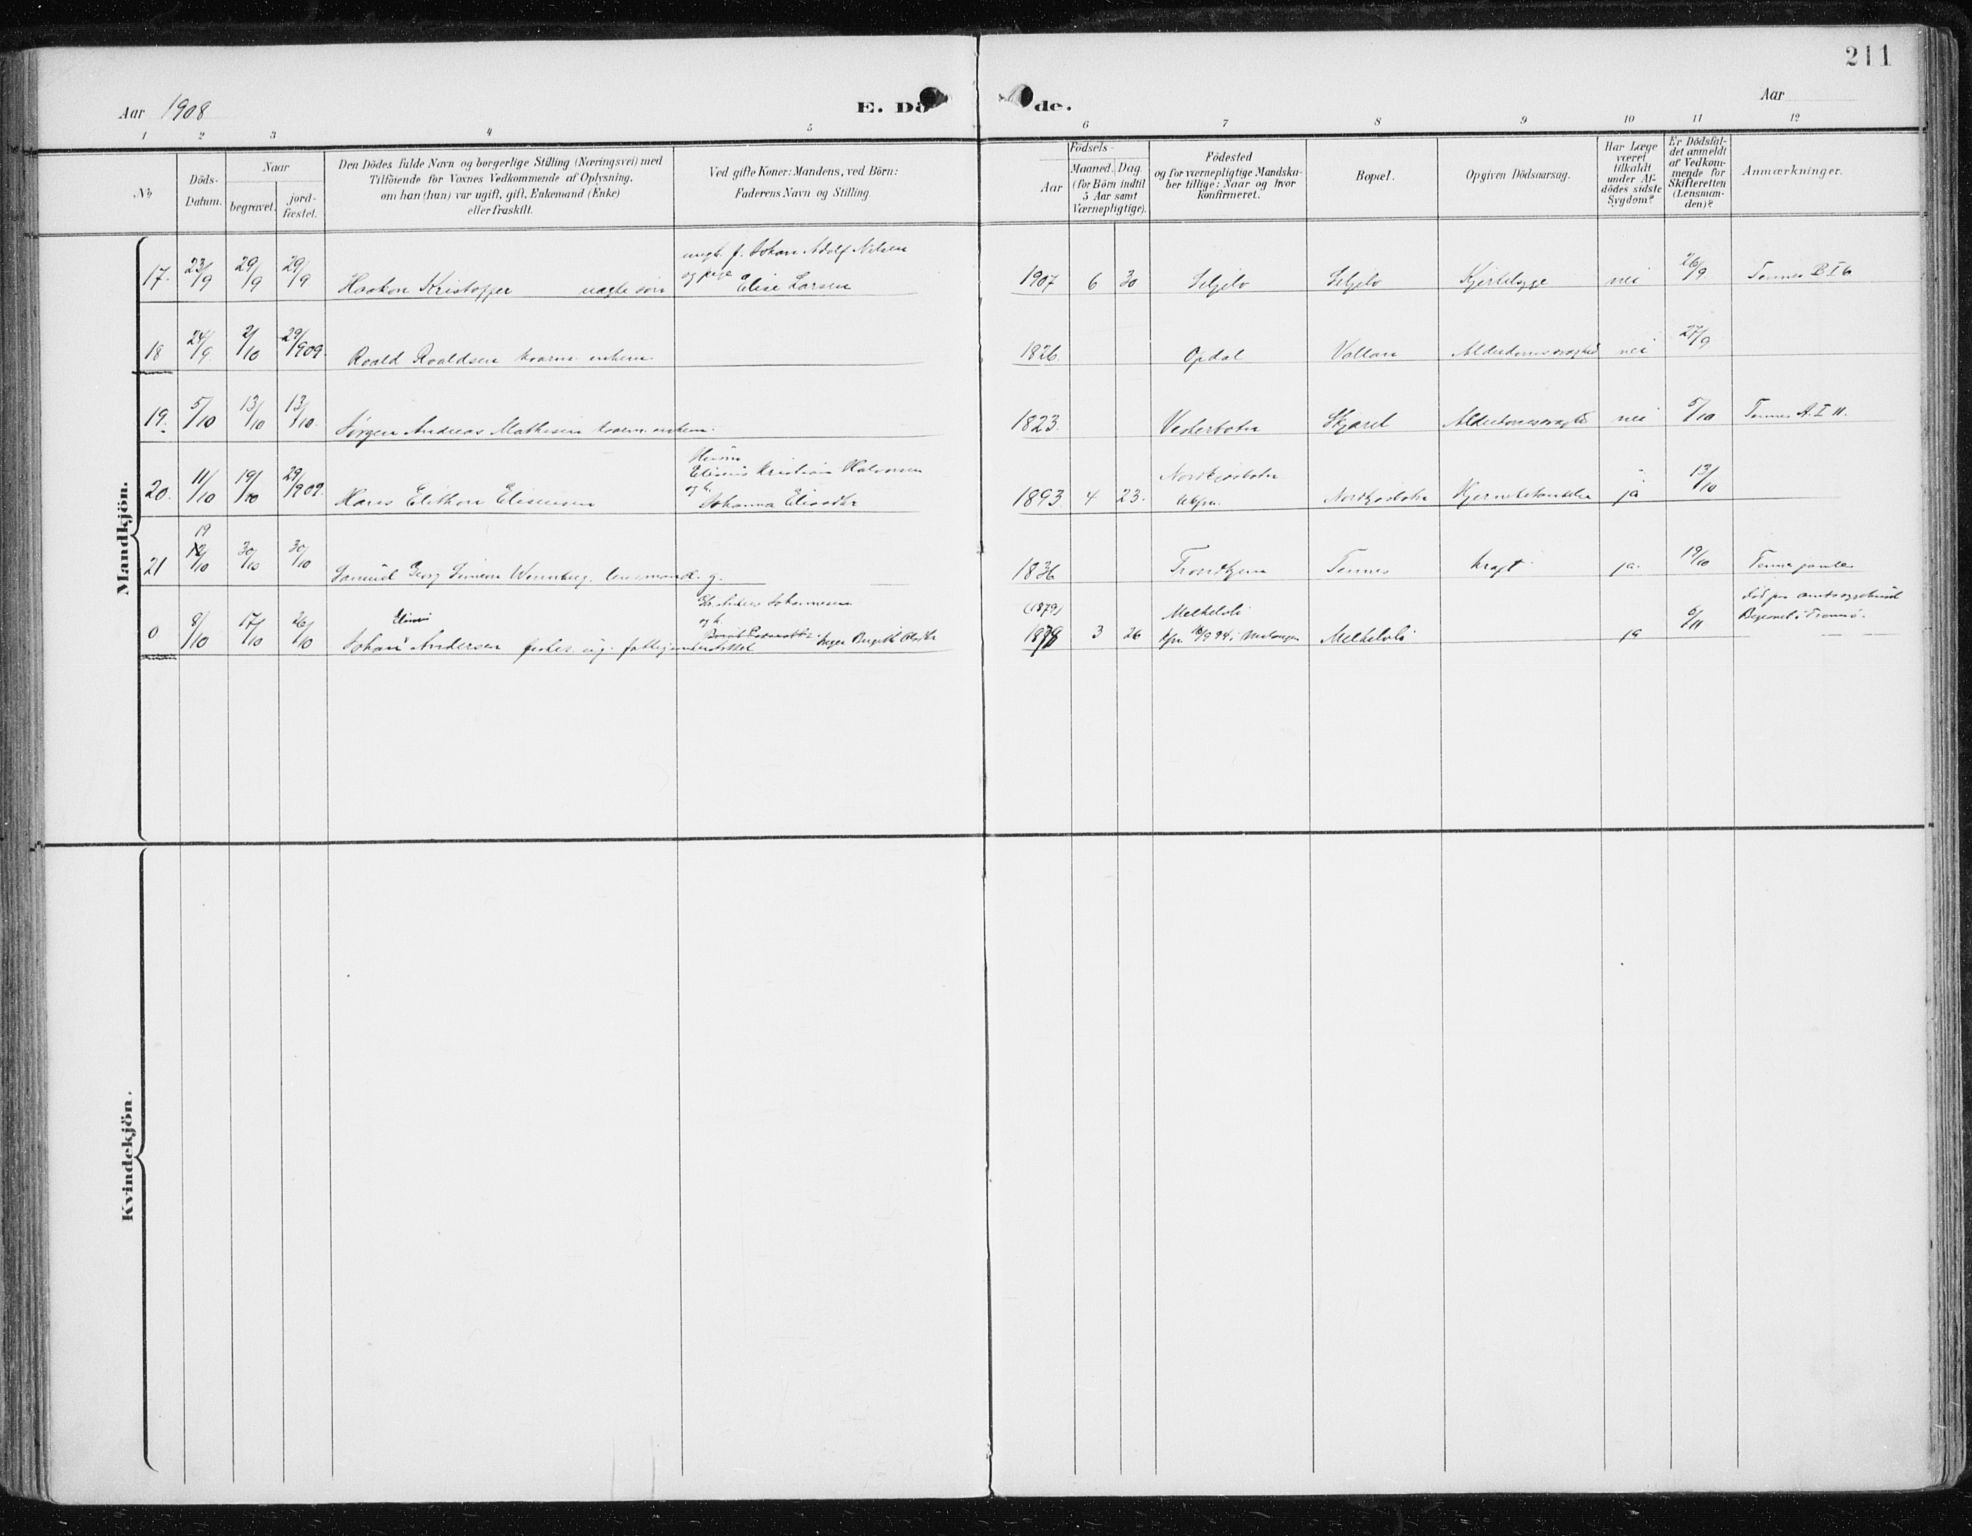 211
Aar 1908
E. Dö de.
Aar
1 2 3 4 5 6 7 8 9 10 11 12
№
Döds-Datum.
Naar
begravet.
jord-fæstet.
Den Dödes fulde Navn og borgerlige Stilling (Næringsvei) med
Tilföiende for Voxnes Vedkommende af Oplysning,
om han (hun) var ugift, gift, Enkemand (Enke)
eller fraskilt.
Ved gifte Koner: Mandens, ved Börn:
Faderens Navn og Stilling.
Födsels-
Aar
Maaned. Dag
(for Börn indtil
5 Aar samt
Værnepligtige).
Födested
og for værnepligtige Mandska-
ber tillige: Naar og hvor
konfirmeret.
Bopæl.
Opgiven Dödsaarsag.
Har Læge
været
tilkaldt
under Af-
dödes sidste
Sygdom?
Er Dödsfal-
det anmeldt
af Vedkom-
mende for
Skifteretten
(Lensman-
den)?
Anmærkninger.
Mandkjön.
ungk. f. Johan Adolf Nilsen
17. 23/9 29/9 29/9 Haakon Kristoffer uægte sön og pige Elise Larsen 1907 6 30 Seljelv Seljelv nei 26/9 Tennes B I 6
18 24/9 2/10 29/1 909. Roald Roaldsen enkem. 1826. Opdal Vollan Alderdomssvaghed nei 27/9
19. 5/10 13/10 13/10. Jörgen Andreas Mathisen enkem. 1823. Vesterbotn Alderdomssvaghed nei 5/10 Tennes A. I 11.
20. 11/10 19/10 29/1 909. Hans Elithon Eliseusen Kristian Halvorsen og h. Johanna 1893 4 23. Nordkjosbotn ukfm. Nordkjosbotn Hjernebetændelse ja 13/10
19
21 12/10 30/10 30/10 Samuel Georg Wennberg, lensmand. g. 1836 Trondhjem Tennes kræft ja. 19/10 Tennes gamle
0 8/10 17/10 26/10 Johan Andersen fisker. ug. fattigunderstöttet Johannesen og h. Inger Birgitte (1879) 1878 3 26 Melkelvli kfm. 16/9 94 i Malangen Melkelvli ja 6/11 död paa amtssygehuset Begravet i Tromsö.
Kvindekjön.